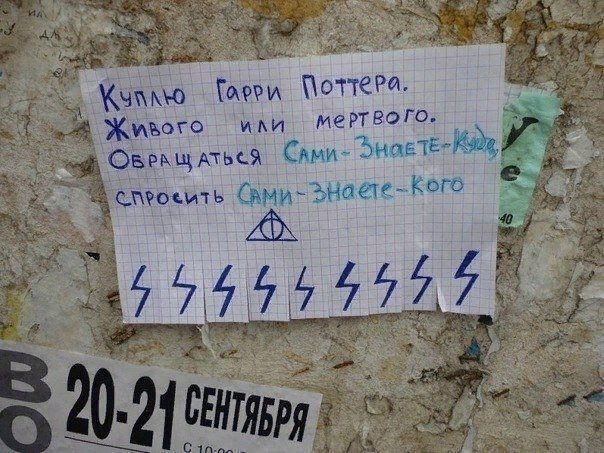 Куплю Гарри Поттера.
Живого или мертвого.
Обращаться Сами-Знаете-Куда,
спросить Сами-Знаете-Кого
у
е
-40
ВО
20-21 СЕНТЯБРЯ